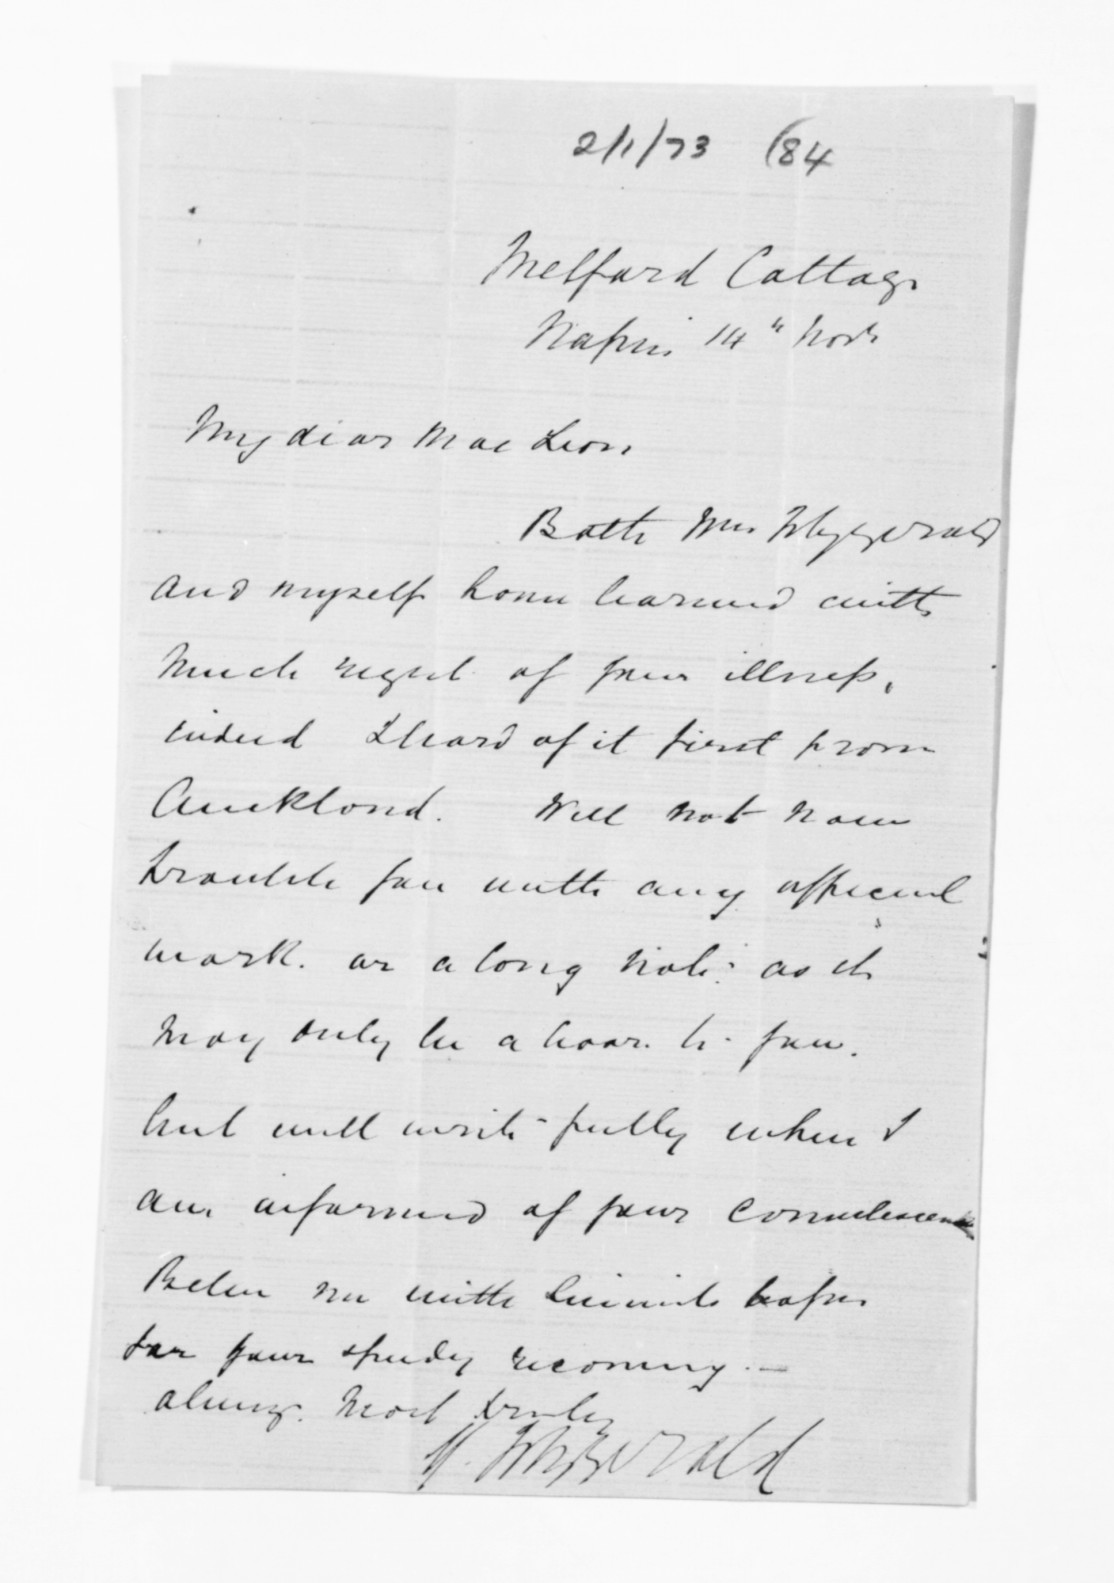 2/1/73 (84
Melford Cottage
Napier 14th Novr
My dear Mac Lean
Both Mrs Fitzgerald
and myself have learned with
much regret of your illness,
indeed I heard of it first from
Auckland. Will not now
trouble you with any official
work. or a long note as it
may only be a boar to you.
but will write fully when I
am informed of your convalescence
Believe me with sincerest hopes
for your speedy recovery. —
always most truly
Fitzgerald